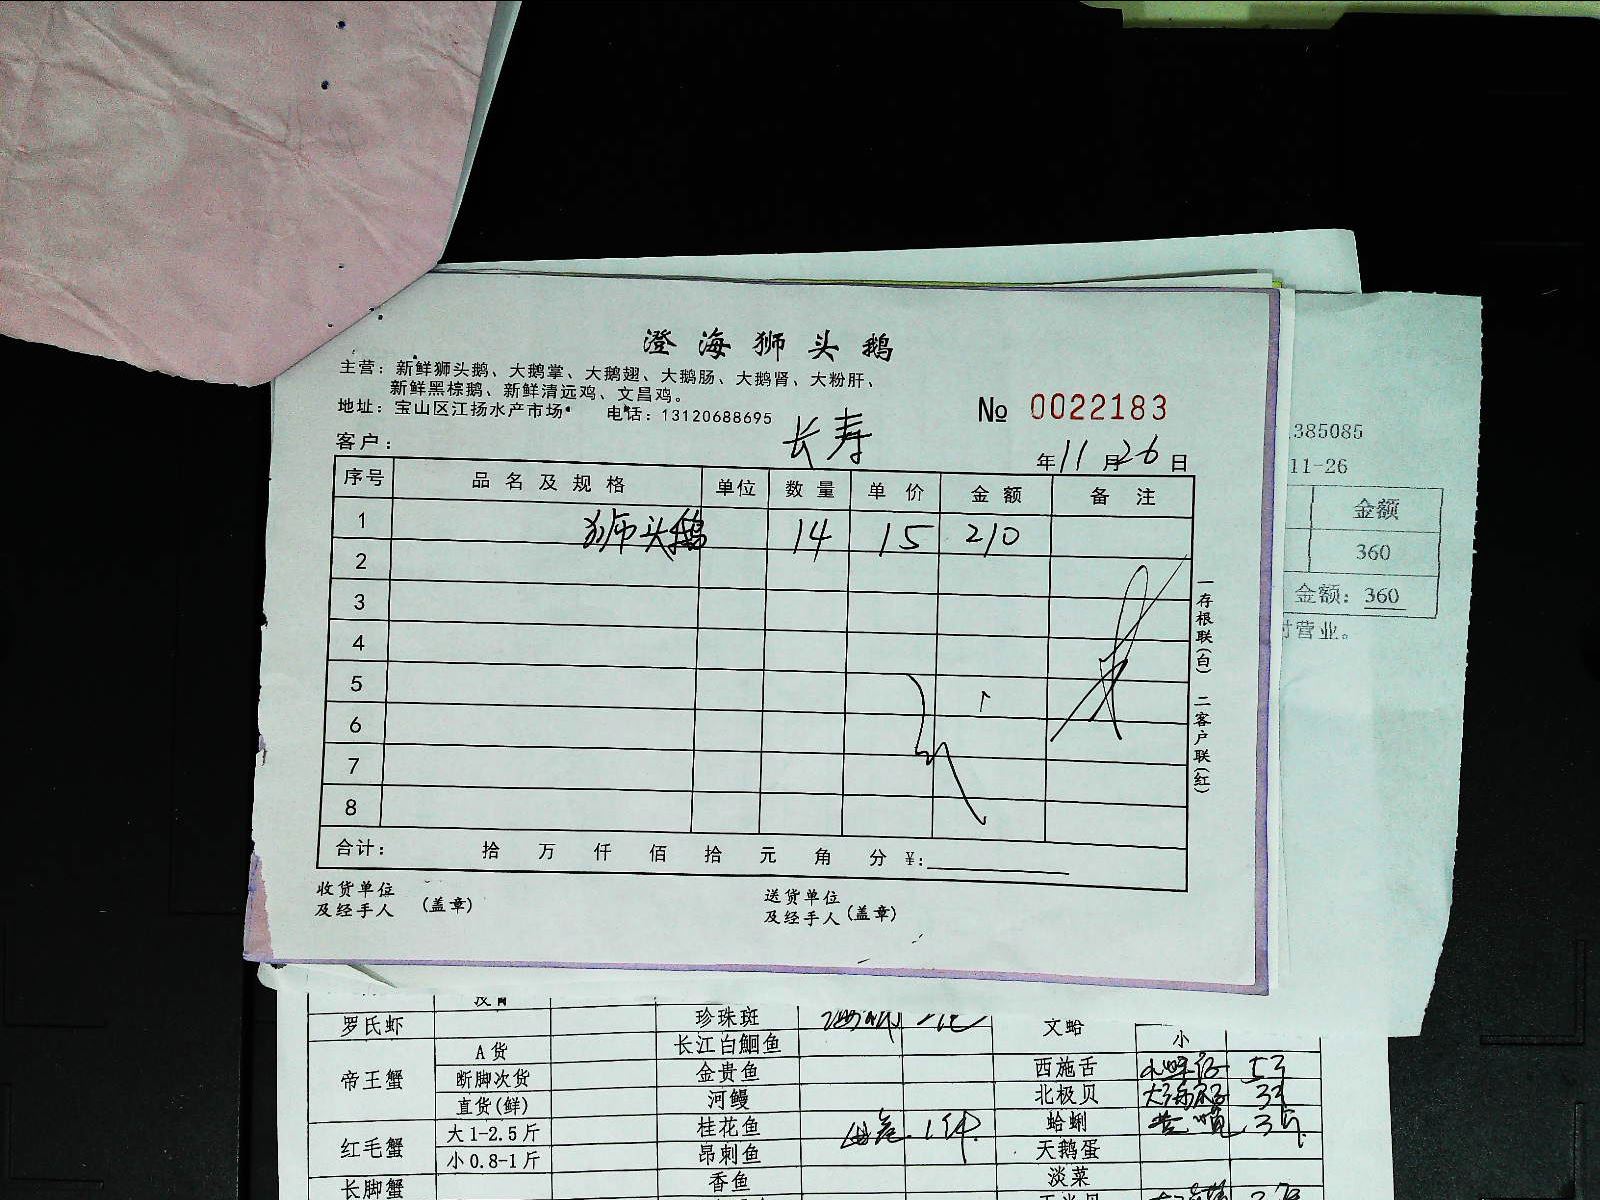 澄海狮头鹅
主营：新鲜狮头鹅、大鹅掌、大鹅翅、大鹅肠、大鹅肾、大粉肝、
新鲜黑棕鹅、新鲜清远鸡、文昌鸡。
地址：宝山区江扬水产市场 电话：13120688695
№ 0022183
客户： 长寿
年11月26日
序号 品名及规格 单位 数量 单价 金额 备注
1 狮头鹅 14 15 210
2
3
4
5
6
7
8
合计： 拾 万 仟 佰 拾 元 角 分 ¥:
收货单位
及经手人 (盖章)
送货单位
及经手人 (盖章)
一存根联(白) 二客户联(红)
385085
11-26
金额
360
金额：360
营业。
罗氏虾 珍珠斑 文蛤 小
A货 长江白鮰鱼
帝王蟹 断脚次货 金贵鱼 西施舌
直货(鲜) 河鳗 北极贝
红毛蟹 大1-2.5斤 桂花鱼 1件 蛤蜊
小0.8-1斤 昂刺鱼 天鹅蛋
长脚蟹 香鱼 淡菜